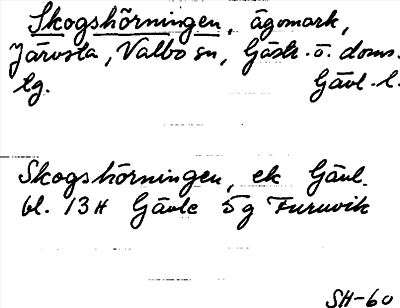 Skogshörningen, ägomark,
Järvsta, Valbo sn, Gästr. ö. doms.
lg. Gävl. l.
Skogshörningen, ek Gävl.
bl. 13H Gävle 5g Furuvik
SH-60